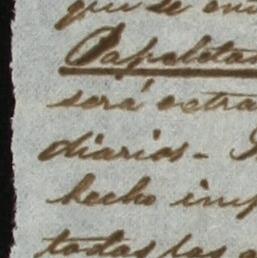 que se en
Papeletas
será extra
diarios - 
hecho imp
todas las